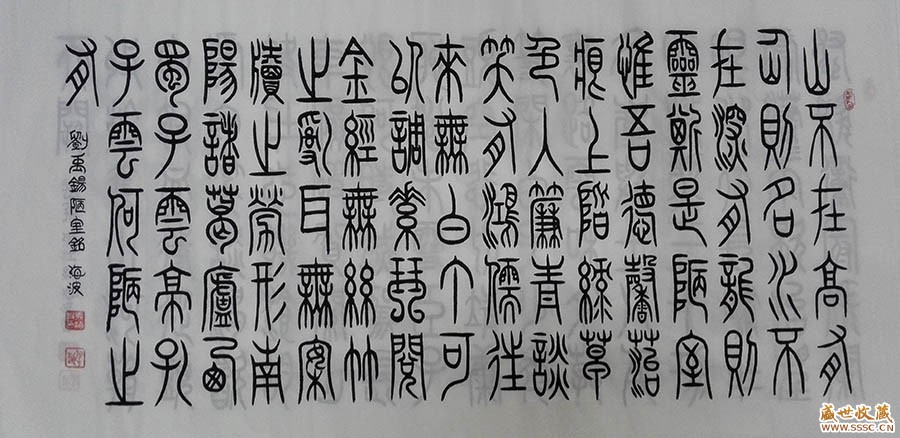 山不在高有
仙則名水不
在深有龍則
靈斯是陋室
惟吾德馨苔
痕上階綠草
色入簾青談
笑有鴻儒往
來無白丁可
以調素琴閱
金經無絲竹
之亂耳無案
牘之勞形南
陽諸葛廬西
蜀子雲亭孔
子雲何陋之
有
劉禹錫陋室銘 海波
盛世收藏
WWW.SSSC.CN